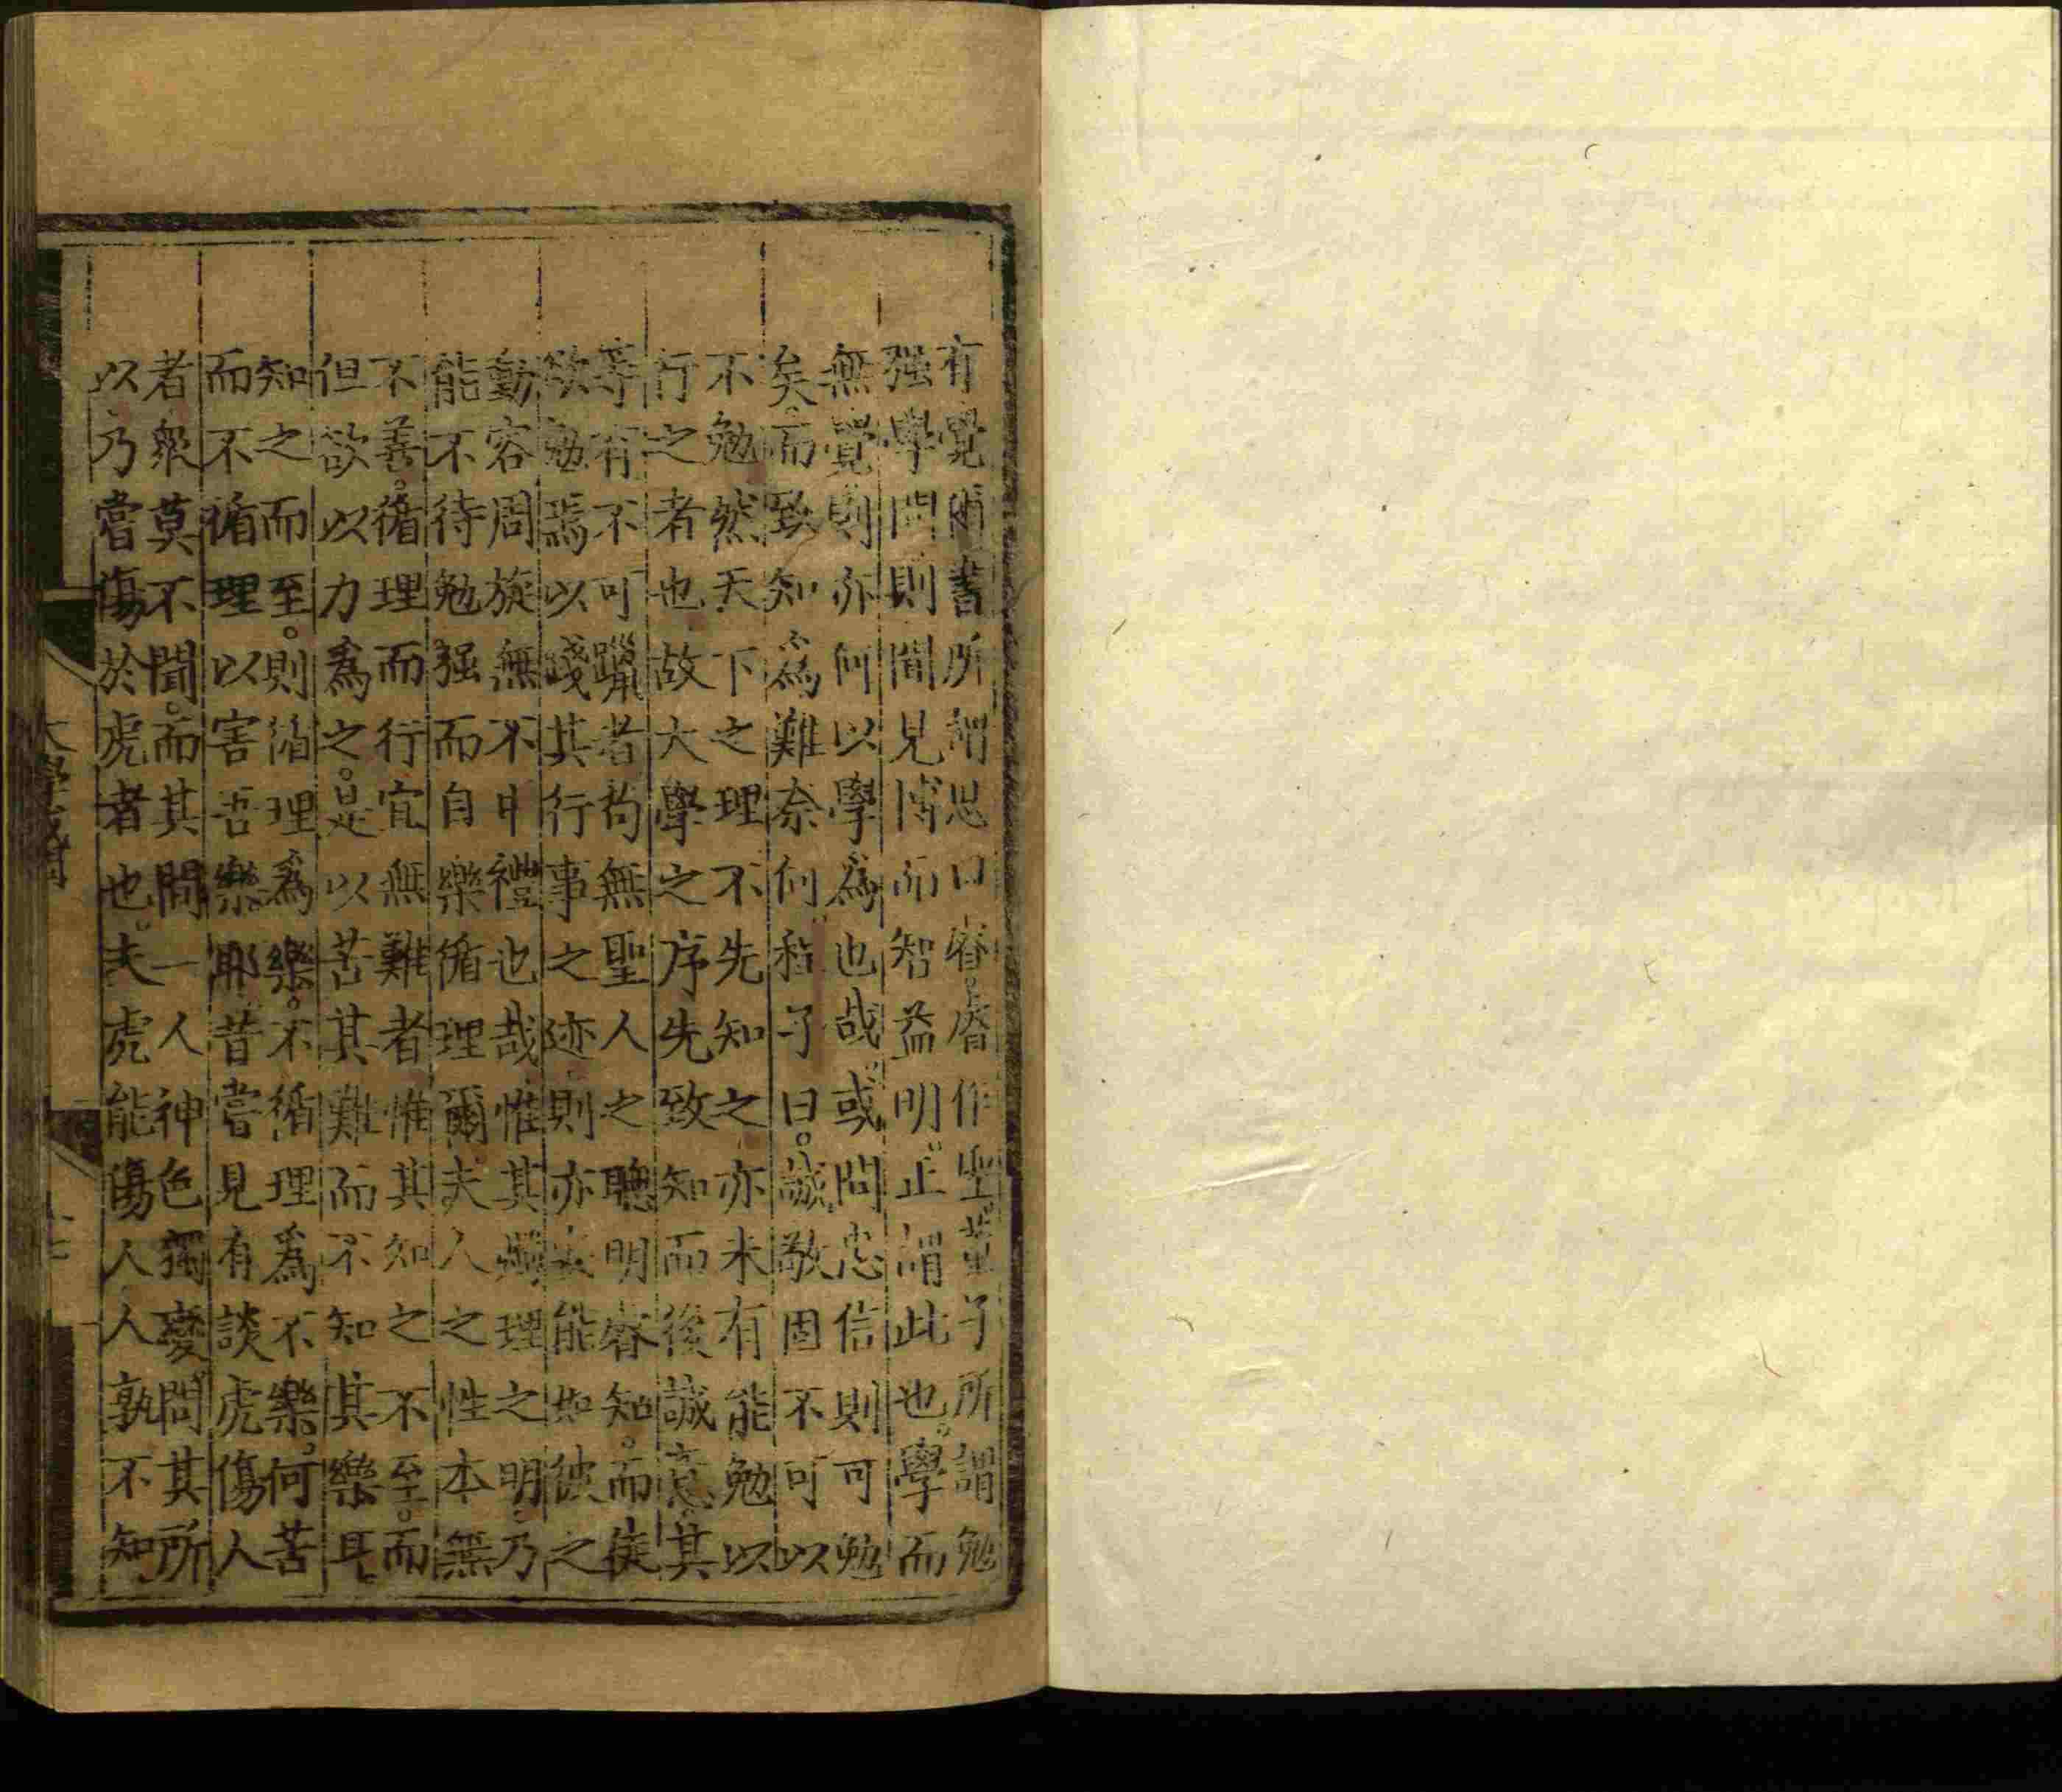 有覺爾書所謂思曰睿睿作聖董子所謂勉
强學問則聞見博而智益明正謂此也學而
無覺則亦何以學爲也哉或問忠信則可勉
矣而致知爲難奈何程子曰誠敬固不可以
不勉然天下之理不先知之亦未有能勉以
行之者也故大學之序先致知而後誠意其
等有不可躐者苟無聖人之聰明睿知而徒
欲勉焉以踐其行事之迹則亦安能如彼之
動容周旋無不中禮也哉惟其燭理之明乃
能不待勉强而自樂循理爾夫人之性本無
不善循理而行宜無難者惟其知之不至而
但欲以力爲之是以苦其難而不知其樂耳
知之而至則循理爲樂不循理爲不樂何苦
而不循理以害吾樂耶昔嘗見有談虎傷人
者衆莫不聞而其間一人神色獨變問其所
以乃嘗傷於虎者也夫虎能傷人人孰不知
大學或問